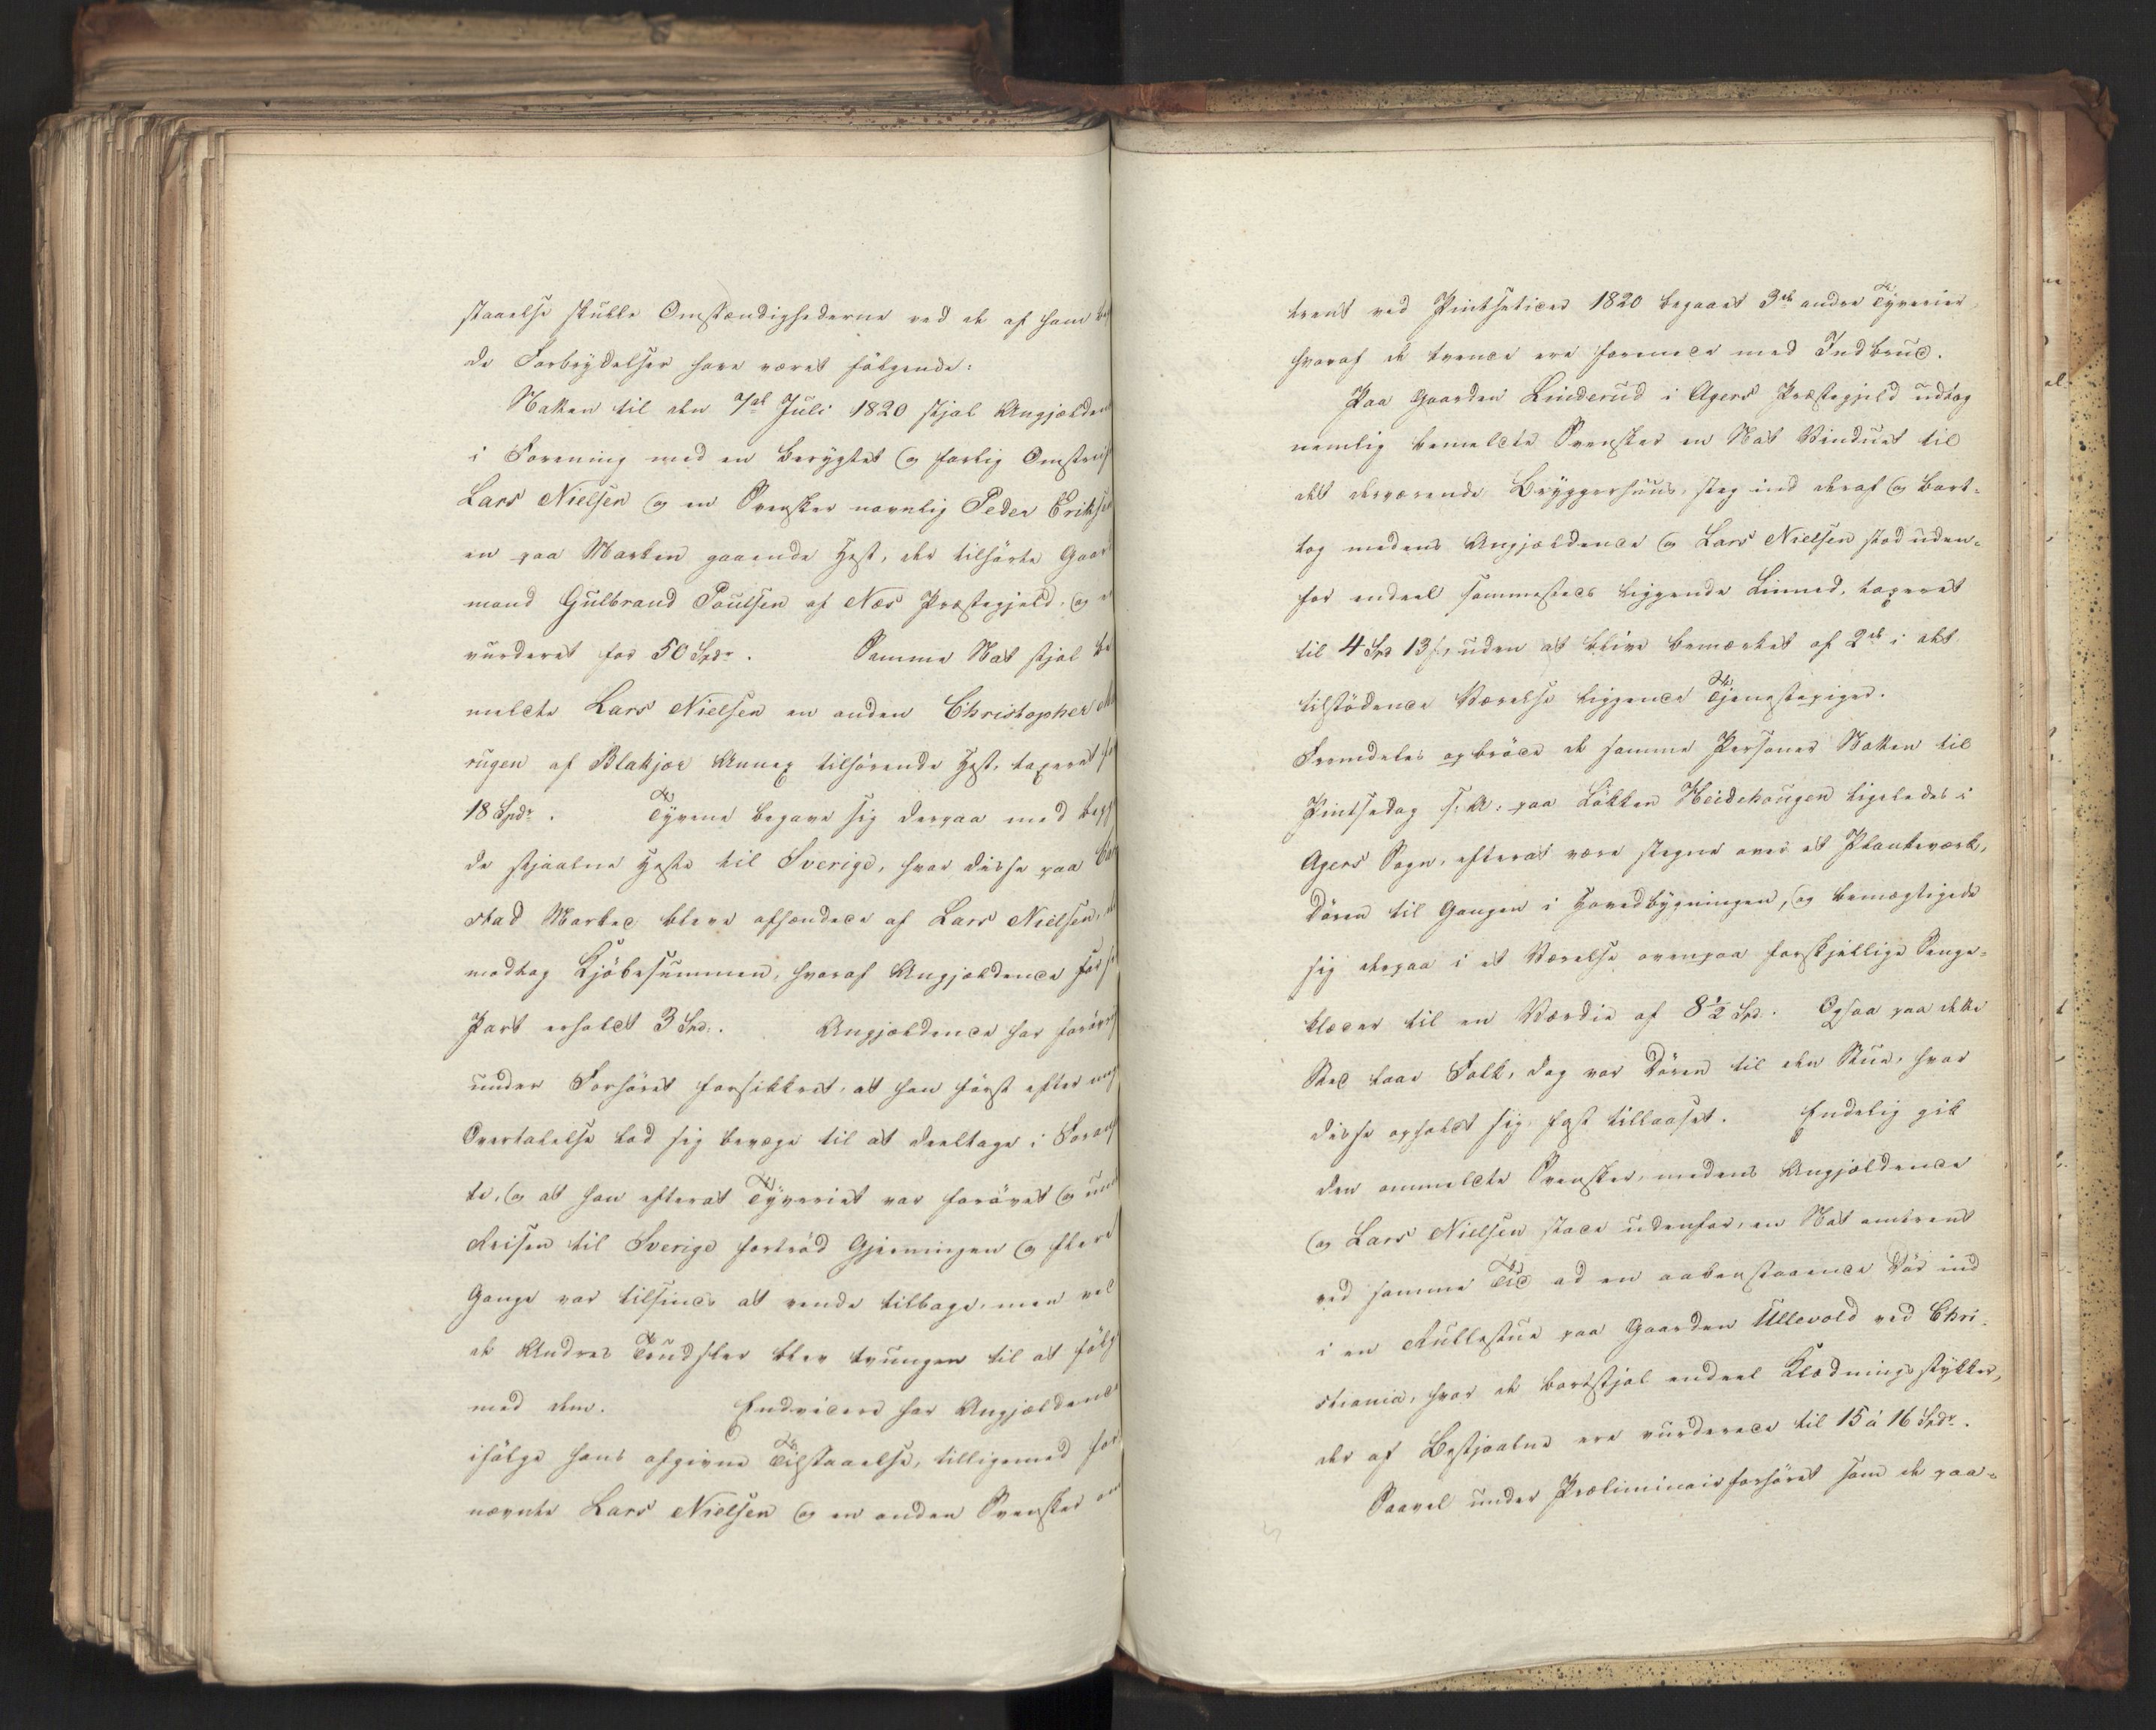 staaelse skulle Omstændighederne ved de af ham
de Forbrydelser have været følgende:
Natten til den 7de Juli 1820 stjal Angjældende
i Forening med en berygtet og farlig
Lars Nielsen og en Svensker navnlig Peder Eriksen
en paa Marken gaaende Hest, der tilhørte
mand Gulbrand Poulsen af Næs Præstegjeld, og
vurderet for 50 Spdr. Samme Nat stjal
meldte Lars Nielsen en anden Christopher
rugen af Blakjær Annex tilhørende Hest, taxeret
18 Spdr. Tyvene begave sig derpaa med
de stjaalne Heste til Sverige, hvor disse paa
stad Marked bleve afhændede af Lars Nielsen,
modtog Kjøbesummen, hvoraf Angjældende
Part erholdt 3 Spd. Angjældende har
under Forhøret forsikkret, at han først efter
Overtalelse lod sig bevæge til at deeltage i
te, og at han efterat Tyveriet var forøvet og
Reisen til Sverige fortrød Gjerningen og flere
Gange var tilsinds at vende tilbage, men ved
de Andres Trudsler blev tvungen til at følge
med dem. Endvidere har Angjældende
ifølge hans afgivne Tilstaaelse, tilligemed
nævnte Lars Nielsen og en anden Svensker
trent ved Pintsetider 1820 begaaet 3de andre Tyverier
hvoraf de tvende ere forenede med Indbrud.
Paa Gaarden Linderud i Agers Præstegjeld udtog
nemlig bemeldte Svensker en Nat Vinduet til
det derværende Bryggerhuus, steg ind deraf og bort-
tog medens Angjældende og Lars Nielsen stod uden-
for endeel sammesteds liggende Linned, taxeret
til 4 Spd 13 s, uden at blive bemærket af 2de i det
tilstødende Værelse liggende Tjenestepiger.
Fremdeles opbrøde de samme Personer Natten til
Pintsedag s: A: paa Løkken Heidehougen ligeledes i
Agers Sogn, efterat være stegne over et Plankeværk,
Døren til Gangen i Hovedbygningen, og bemægtigede
sig derpaa i et Værelse ovenpaa forskjellige Senge-
klæder til en Værdie af 8½ Spd. Ogsaa paa dette
Sted laae Folk, dog var Døren til den Stue, hvor
disse opholdt sig fast tillaaset. Endelig gik
den ommeldte Svensker, medens Angjældende
og Lars Nielsen stode udenfor, en Nat omtrent
ved samme Tid ad en aabenstaaende Dør ind
i en Rullestue paa Gaarden Ullevold ved Chri-
stiania, hvor de bortstjal endeel Klædningsstykker,
der af Bestjaalne ere vurderede til 15 à 16 Spdr.
Saavel under Præliminairforhøret som de paa-